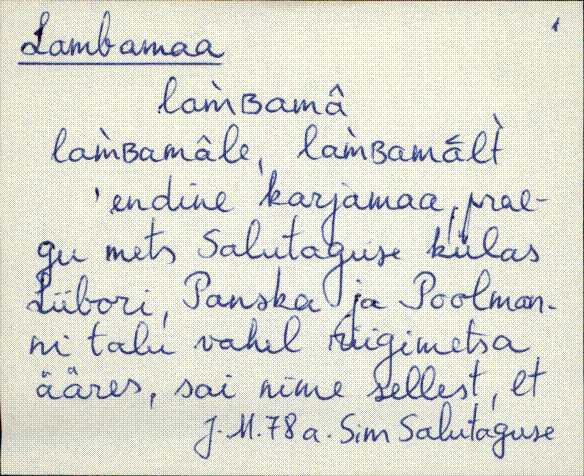 1
Lambamaa
lam̀ʙamâ
lam̀ʙamâle, lam̀ʙamâlt̀
'endine karjamaa, prae-
gu mets Salutaguse külas
Liibori, Panska ja Poolman-
ni talu vahel riigimetsa
ääres, sai nime sellest, et
J.M. 78 a. Sim Salutaguse